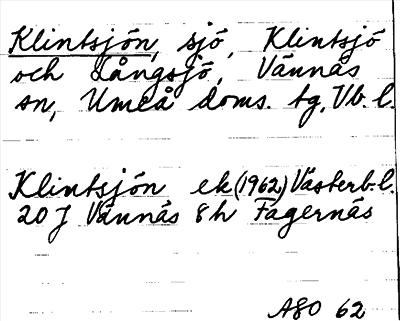 Klintsjön, sjö, Klintsjö
och Långsjö, Vännäs
sn, Umeå doms. tg, Vb. l.
Klintsjön ek (1962) Västerb. l.
20 J Vännäs 8h Fagernäs
ASO 62